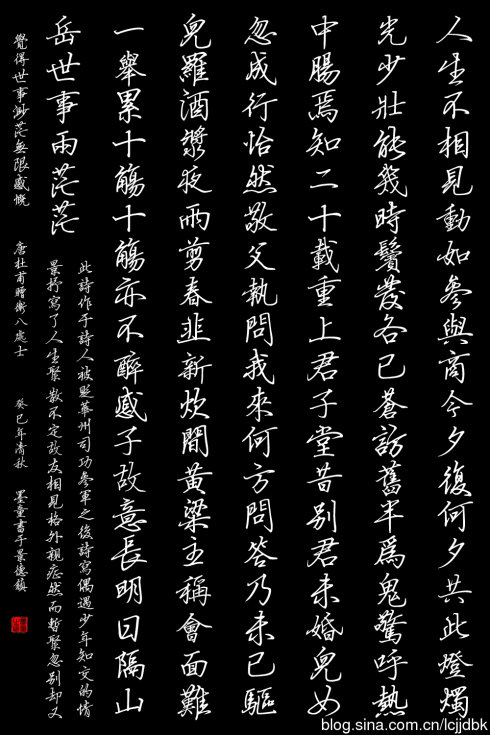 人生不相見動如參與商今夕復何夕共此燈燭
光少壯能幾時鬢發各已蒼訪舊半爲鬼驚呼熱
中腸焉知二十載重上君子堂昔別君未婚兒女
忽成行怡然敬父執問我來何方問答乃未已驅
兒羅酒漿夜雨剪春韭新炊間黃梁主稱會面難
一舉累十觴十觴亦不醉感子故意長明日隔山
岳世事兩茫茫
此詩作于詩人被貶華州司功參軍之後詩寫偶遇少年知交的情
景抒寫了人生聚散不定故友相見格外親症然而暫聚忽別却又
覺得世事渺茫無限感慨 唐杜甫贈衛八處士 癸巳年清秋 墨童書于景德鎮
blog.sina.com.cn/lcjjdbk